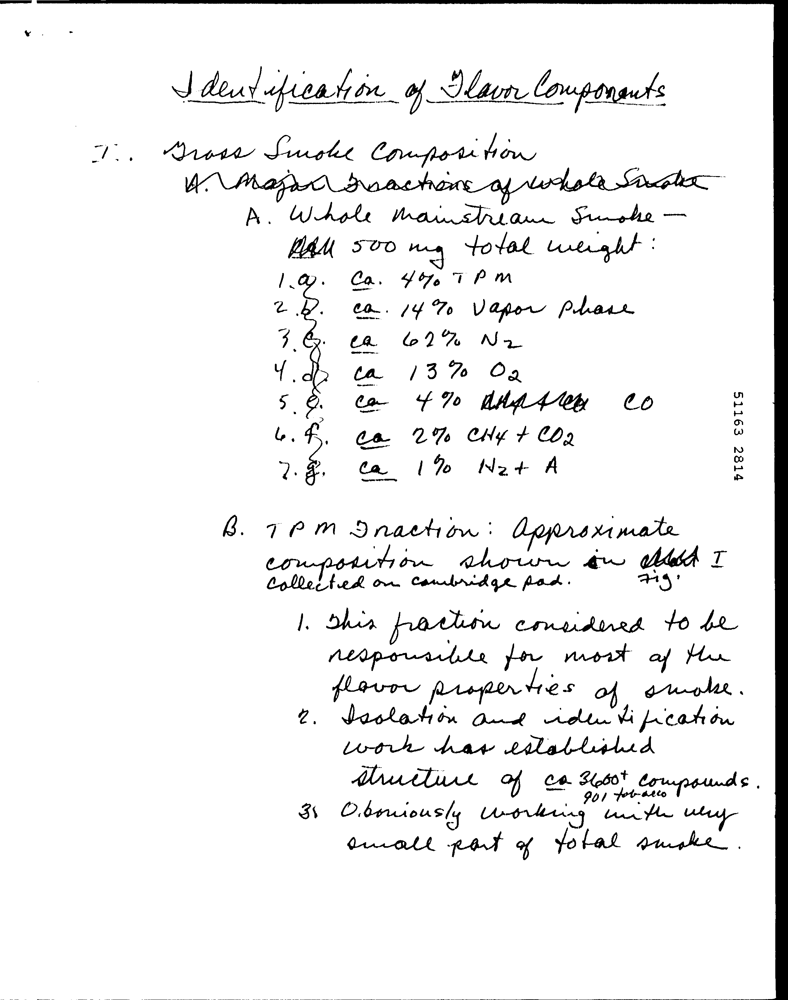 Identification of Flavor Components
I. Gross Smoke Composition
A. Major Fractions of whole Smoke
A. Whole Mainstream Smoke —
500 mg total weight:
1. a. Ca. 4% TPM
2. b. ca. 14% Vapor Phase
3. c. ca 62% N2
4. d. ca 13% O2
5. e. ca 4% CO
6. f. ca 2% CH4 + CO2
7. g. ca 1% N2 + A
51163 2814
B. TPM Fraction: Approximate
composition shown in I
Collected on cambridge pad. Fig.
1. This fraction considered to be
responsible for most of the
flavor properties of smoke.
2. Isolation and identification
work has established
structure of ca 3600+ compounds.
901 tobacco
3. Obviously working with very
small part of total smoke.